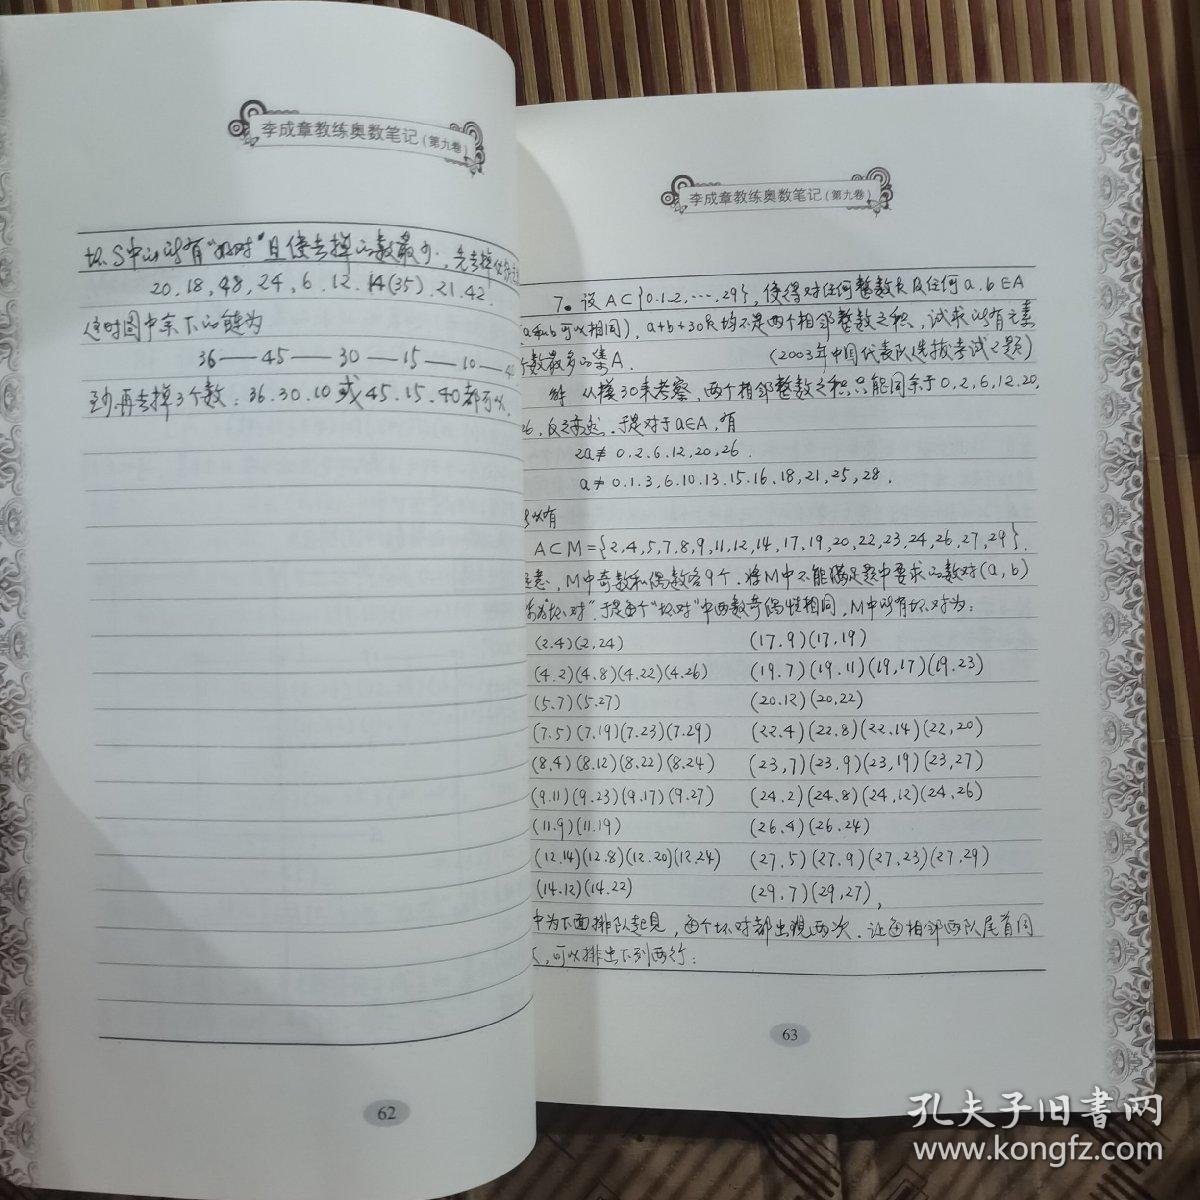 李成章教练奥数笔记(第九卷)
坏.S中的所有“好对”且使去掉的数最少.先去掉
20,18,48,24,6,12,14(35),21,42.
这时图中余下的链为
36—45—30—15—10—40
至少再去掉3个数:36,30,10或45,15,40都可以.
62
李成章教练奥数笔记(第九卷)
7。设A⊂{0,1,2,…,29},使得对任何整数k及任何a,b∈A
(a和b可以相同),a+b+30k均不是两个相邻整数之积,试求所有元素
个数最多的集A.(2003年中国代表队选拔考试2题)
解 从模30来考察,两个相邻整数之积只能同余于0,2,6,12,20,
26,反之亦然.于是对于a∈A,有
2a≢0,2,6,12,20,26.
a≠0,1,3,6,10,13,15,16,18,21,25,28.
所以有
A⊂M={2,4,5,7,8,9,11,12,14,17,19,20,22,23,24,26,27,29}.
注意,M中奇数和偶数各9个.将M中不能满足题中要求的数对(a,b)
称为“坏对”.于是每个“坏对”中两数奇偶性相同,M中所有坏对为:
(2,4)(2,24) (17,9)(17,19)
(4,2)(4,8)(4,22)(4,26) (19,7)(19,11)(19,17)(19,23)
(5,7)(5,27) (20,12)(20,22)
(7,5)(7,19)(7,23)(7,29) (22,4)(22,8)(22,14)(22,20)
(8,4)(8,12)(8,22)(8,24) (23,7)(23,9)(23,19)(23,27)
(9,11)(9,23)(9,17)(9,27) (24,2)(24,8)(24,12)(24,26)
(11,9)(11,19) (26,4)(26,24)
(12,14)(12,8)(12,20)(12,24) (27,5)(27,9)(27,23)(27,29)
(14,12)(14,22) (29,7)(29,27),
中为下面排队起见,每个坏对都出现两次.让每相邻两队尾首同
,可以排出下列两行:
63
孔夫子旧书网
www.kongfz.com